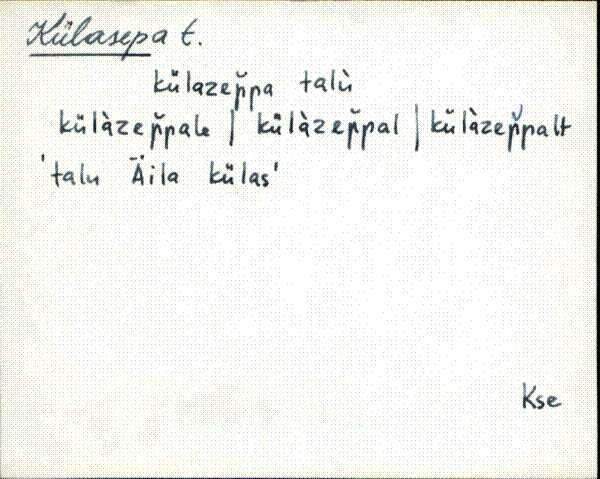 Külasepa t.
külazep̆pa talù
külàzep̆pale | külàzep̆pal | külàzep̆palt
'talu Äila külas'
Kse